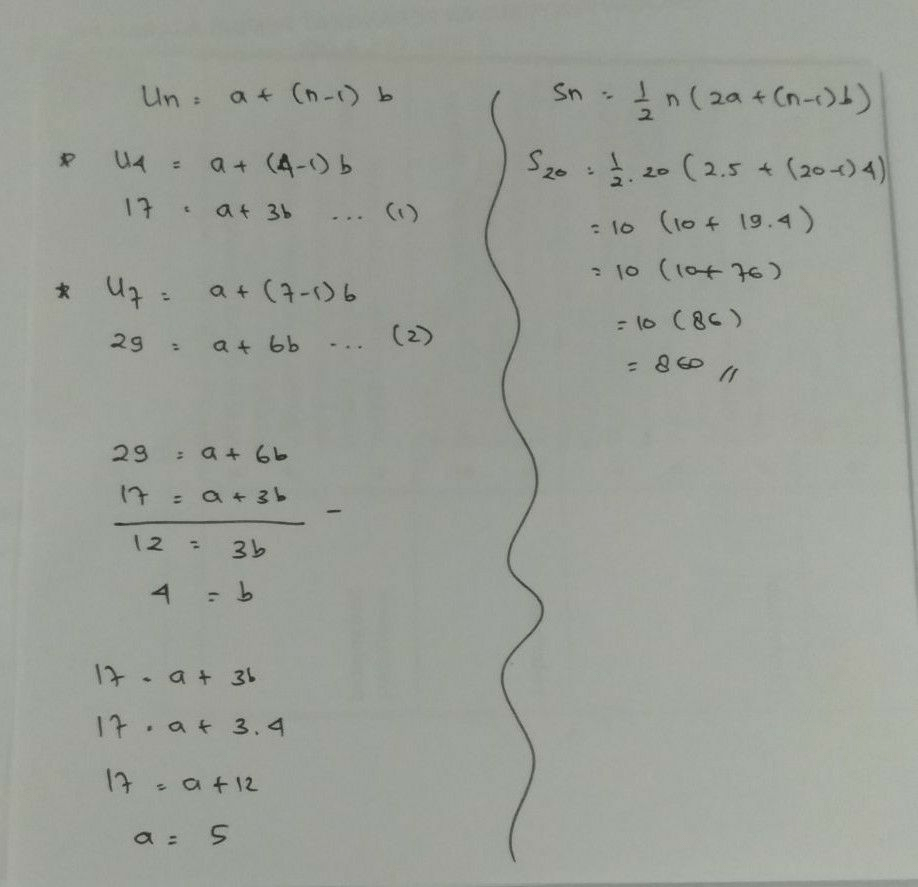 Un = a + (n-1) b
* U4 = a + (4-1) b
17 = a + 3b ... (1)
* U7 = a + (7-1) b
29 = a + 6b ... (2)
29 = a + 6b
17 = a + 3b
12 = 3b
4 = b
17 = a + 3b
17 = a + 3.4
17 = a + 12
a = 5
Sn = 1/2 n (2a + (n-1) b)
S20 = 1/2 . 20 (2.5 + (20-1) 4)
= 10 (10 + 19.4)
= 10 (10 + 76)
= 10 (86)
= 860 //